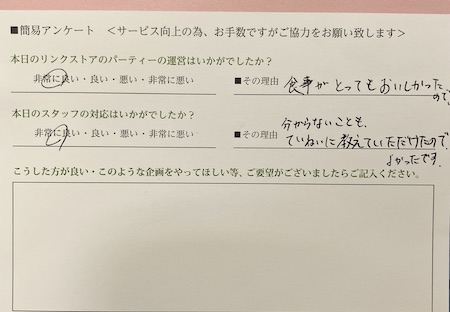 ■簡易アンケート ＜サービス向上の為、お手数ですがご協力をお願い致します＞
本日のリンクストアのパーティーの運営はいかがでしたか？
非常に良い・良い・悪い・非常に悪い
■その理由 食事がとってもおいしかった
ので
本日のスタッフの対応はいかがでしたか？
非常に良い・良い・悪い・非常に悪い
■その理由 分からないことも、
ていねいに教えていただけたので
よかったです。
こうした方が良い・このような企画をやってほしい等、ご要望がございましたらご記入ください。